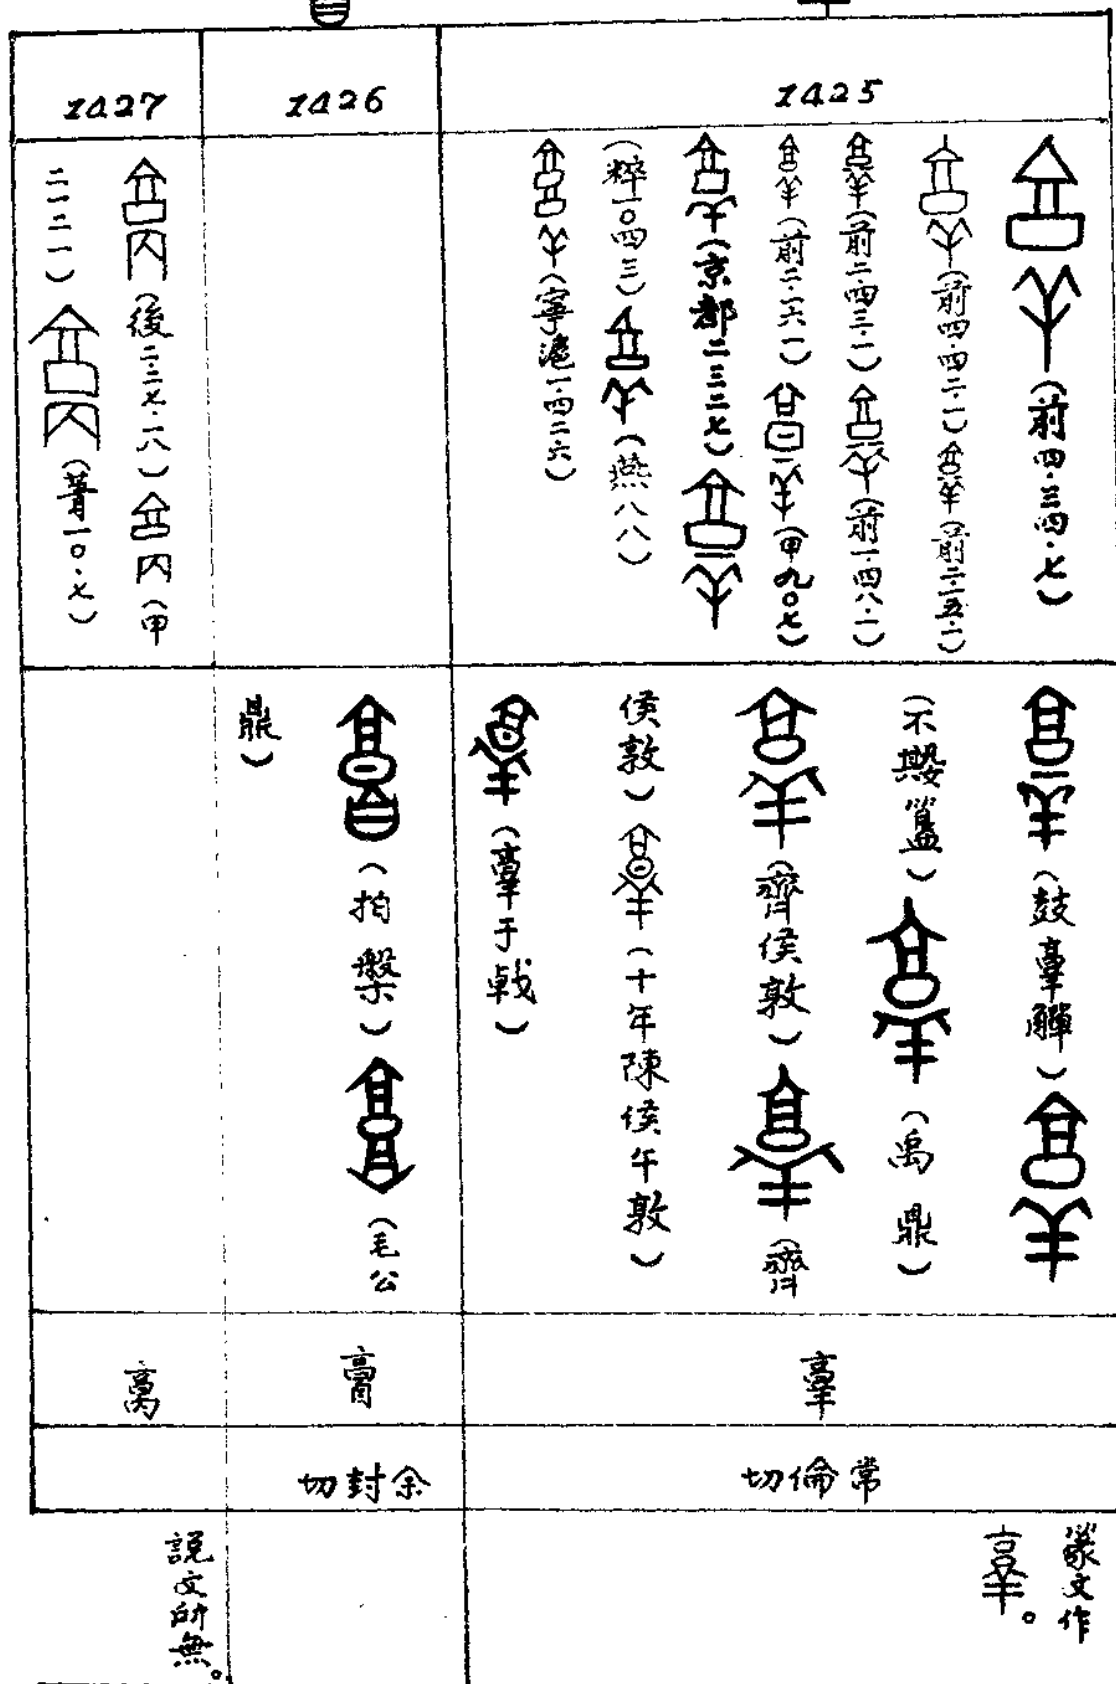 1425
(前四·三四·七)
(前四·四二·一)(前二·五·二)
(前二·四三·一)(前一·四八·二)
(前二·六·一)(甲九〇七)
(京都二三二七)
(粹一〇四三)(燕八八)
(寧滬一·四二六)
(鼓𦎫觶)
(不𡢁簋)(禹鼎)
(齊侯敦)(齊
侯敦)(十年陳侯午敦)
(𦎫于戟)
𦎫
常倫切
篆文作
𦎫。
1426
(拍槃)(毛公
鼎)
𠅠
余封切
1427
(後二·二七·一八)(甲
二一二一)(菁一〇·七)
說文所無。